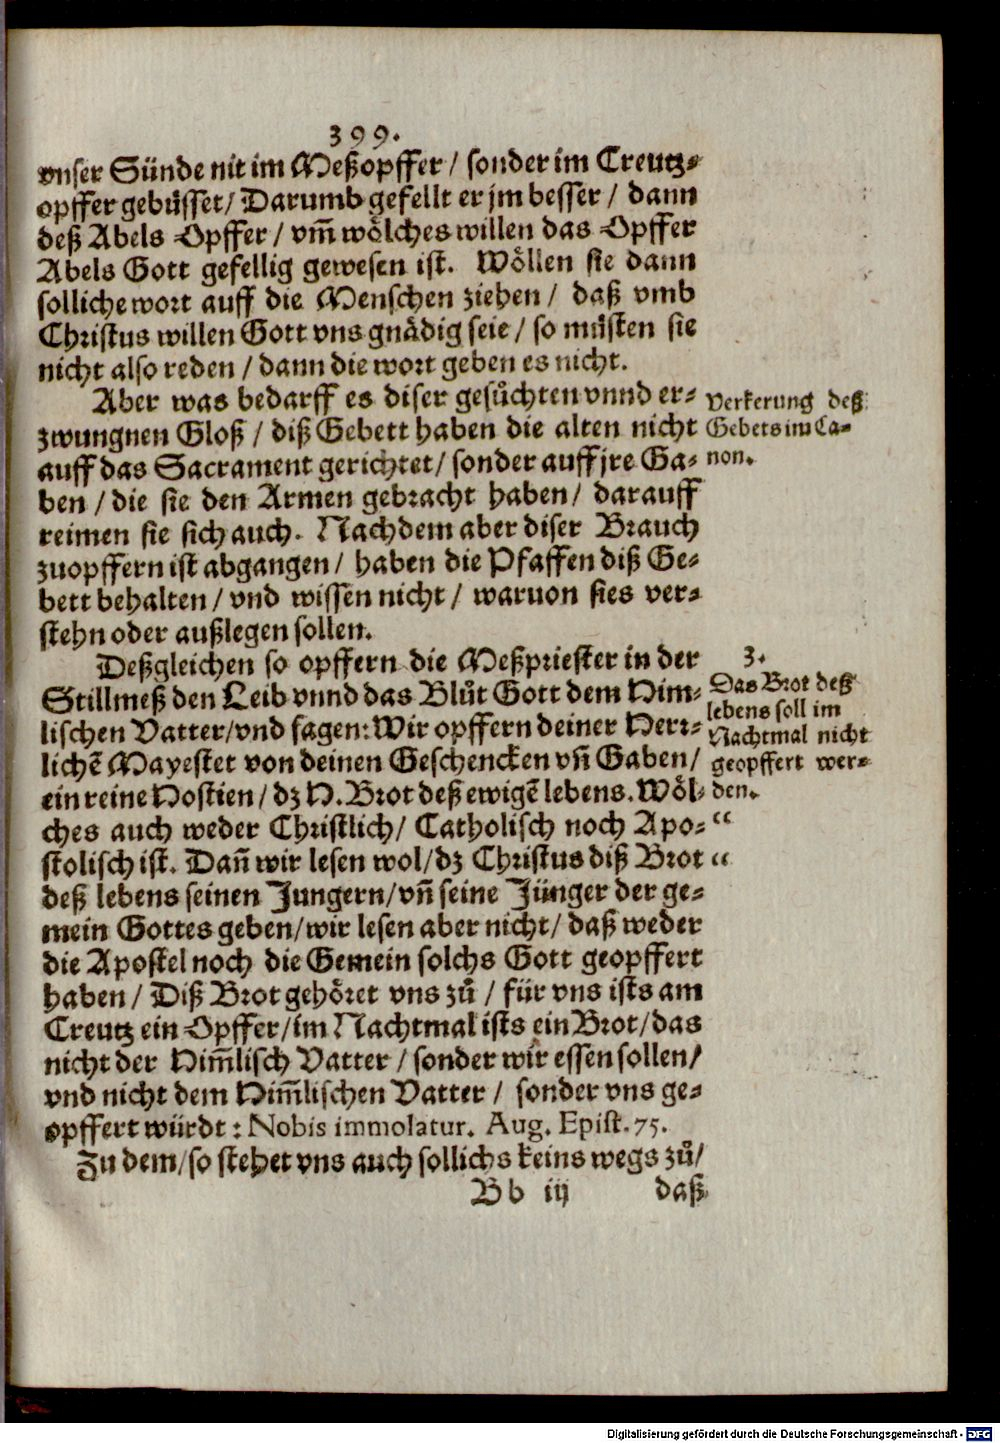 399.
vnser Sünde nit im Meßopffer / sonder im Creutz-
opffer gebüsset / Darumb gefellt er jm besser / dann
deß Abels Opffer / vm̃ wölches willen das Opffer
Abels Gott gefellig gewesen ist. Wöllen sie dann
solliche wort auff die Menschen ziehen / daß vmb
Christus willen Gott vns gnädig seie / so müsten sie
nicht also reden / dann die wort geben es nicht.
Aber was bedarff es diser gesůchten vnnd er-
zwungnen Gloß / diß Gebett haben die alten nicht
auff das Sacrament gerichtet / sonder auff jre Ga-
ben / die sie den Armen gebracht haben / darauff
reimen sie sich auch. Nachdem aber diser Brauch
zuopffern ist abgangen / haben die Pfaffen diß Ge-
bett behalten / vnd wissen nicht / waruon sies ver-
stehn oder außlegen sollen.
Verkerung deß
Gebets im Ca-
non.
Deßgleichen so opffern die Meßpriester in der
Stillmeß den Leib vnnd das Blůt Gott dem Him-
lischen Vatter / vnd sagen: Wir opffern deiner Herr-
lichẽ Mayestet von deinen Geschencken vñ Gaben /
ein reine Hostien / dz H. Brot deß ewigẽ lebens. Wöl-
ches auch weder Christlich / Catholisch noch Apo- “
stolisch ist. Dañ wir lesen wol / dz Christus diß Brot “
deß lebens seinen Jungern / vñ seine Jünger der ge-
mein Gottes geben / wir lesen aber nicht / daß weder
die Apostel noch die Gemein solchs Gott geopffert
haben / Diß Brot gehöret vns zů / für vns ists am
Creutz ein Opffer / im Nachtmal ists ein Brot / das
nicht der Him̃lisch Vatter / sonder wir essen sollen /
vnd nicht dem Him̃lischen Vatter / sonder vns ge-
opffert würdt : Nobis immolatur. Aug. Epist. 75.
3.
Das Brot deß
lebens soll im
Nachtmal nicht
geopffert wer-
den.
Zu dem / so stehet vns auch sollichs keins wegs zů /
Bb iij daß
Digitalisierung gefördert durch die Deutsche Forschungsgemeinschaft - DFG